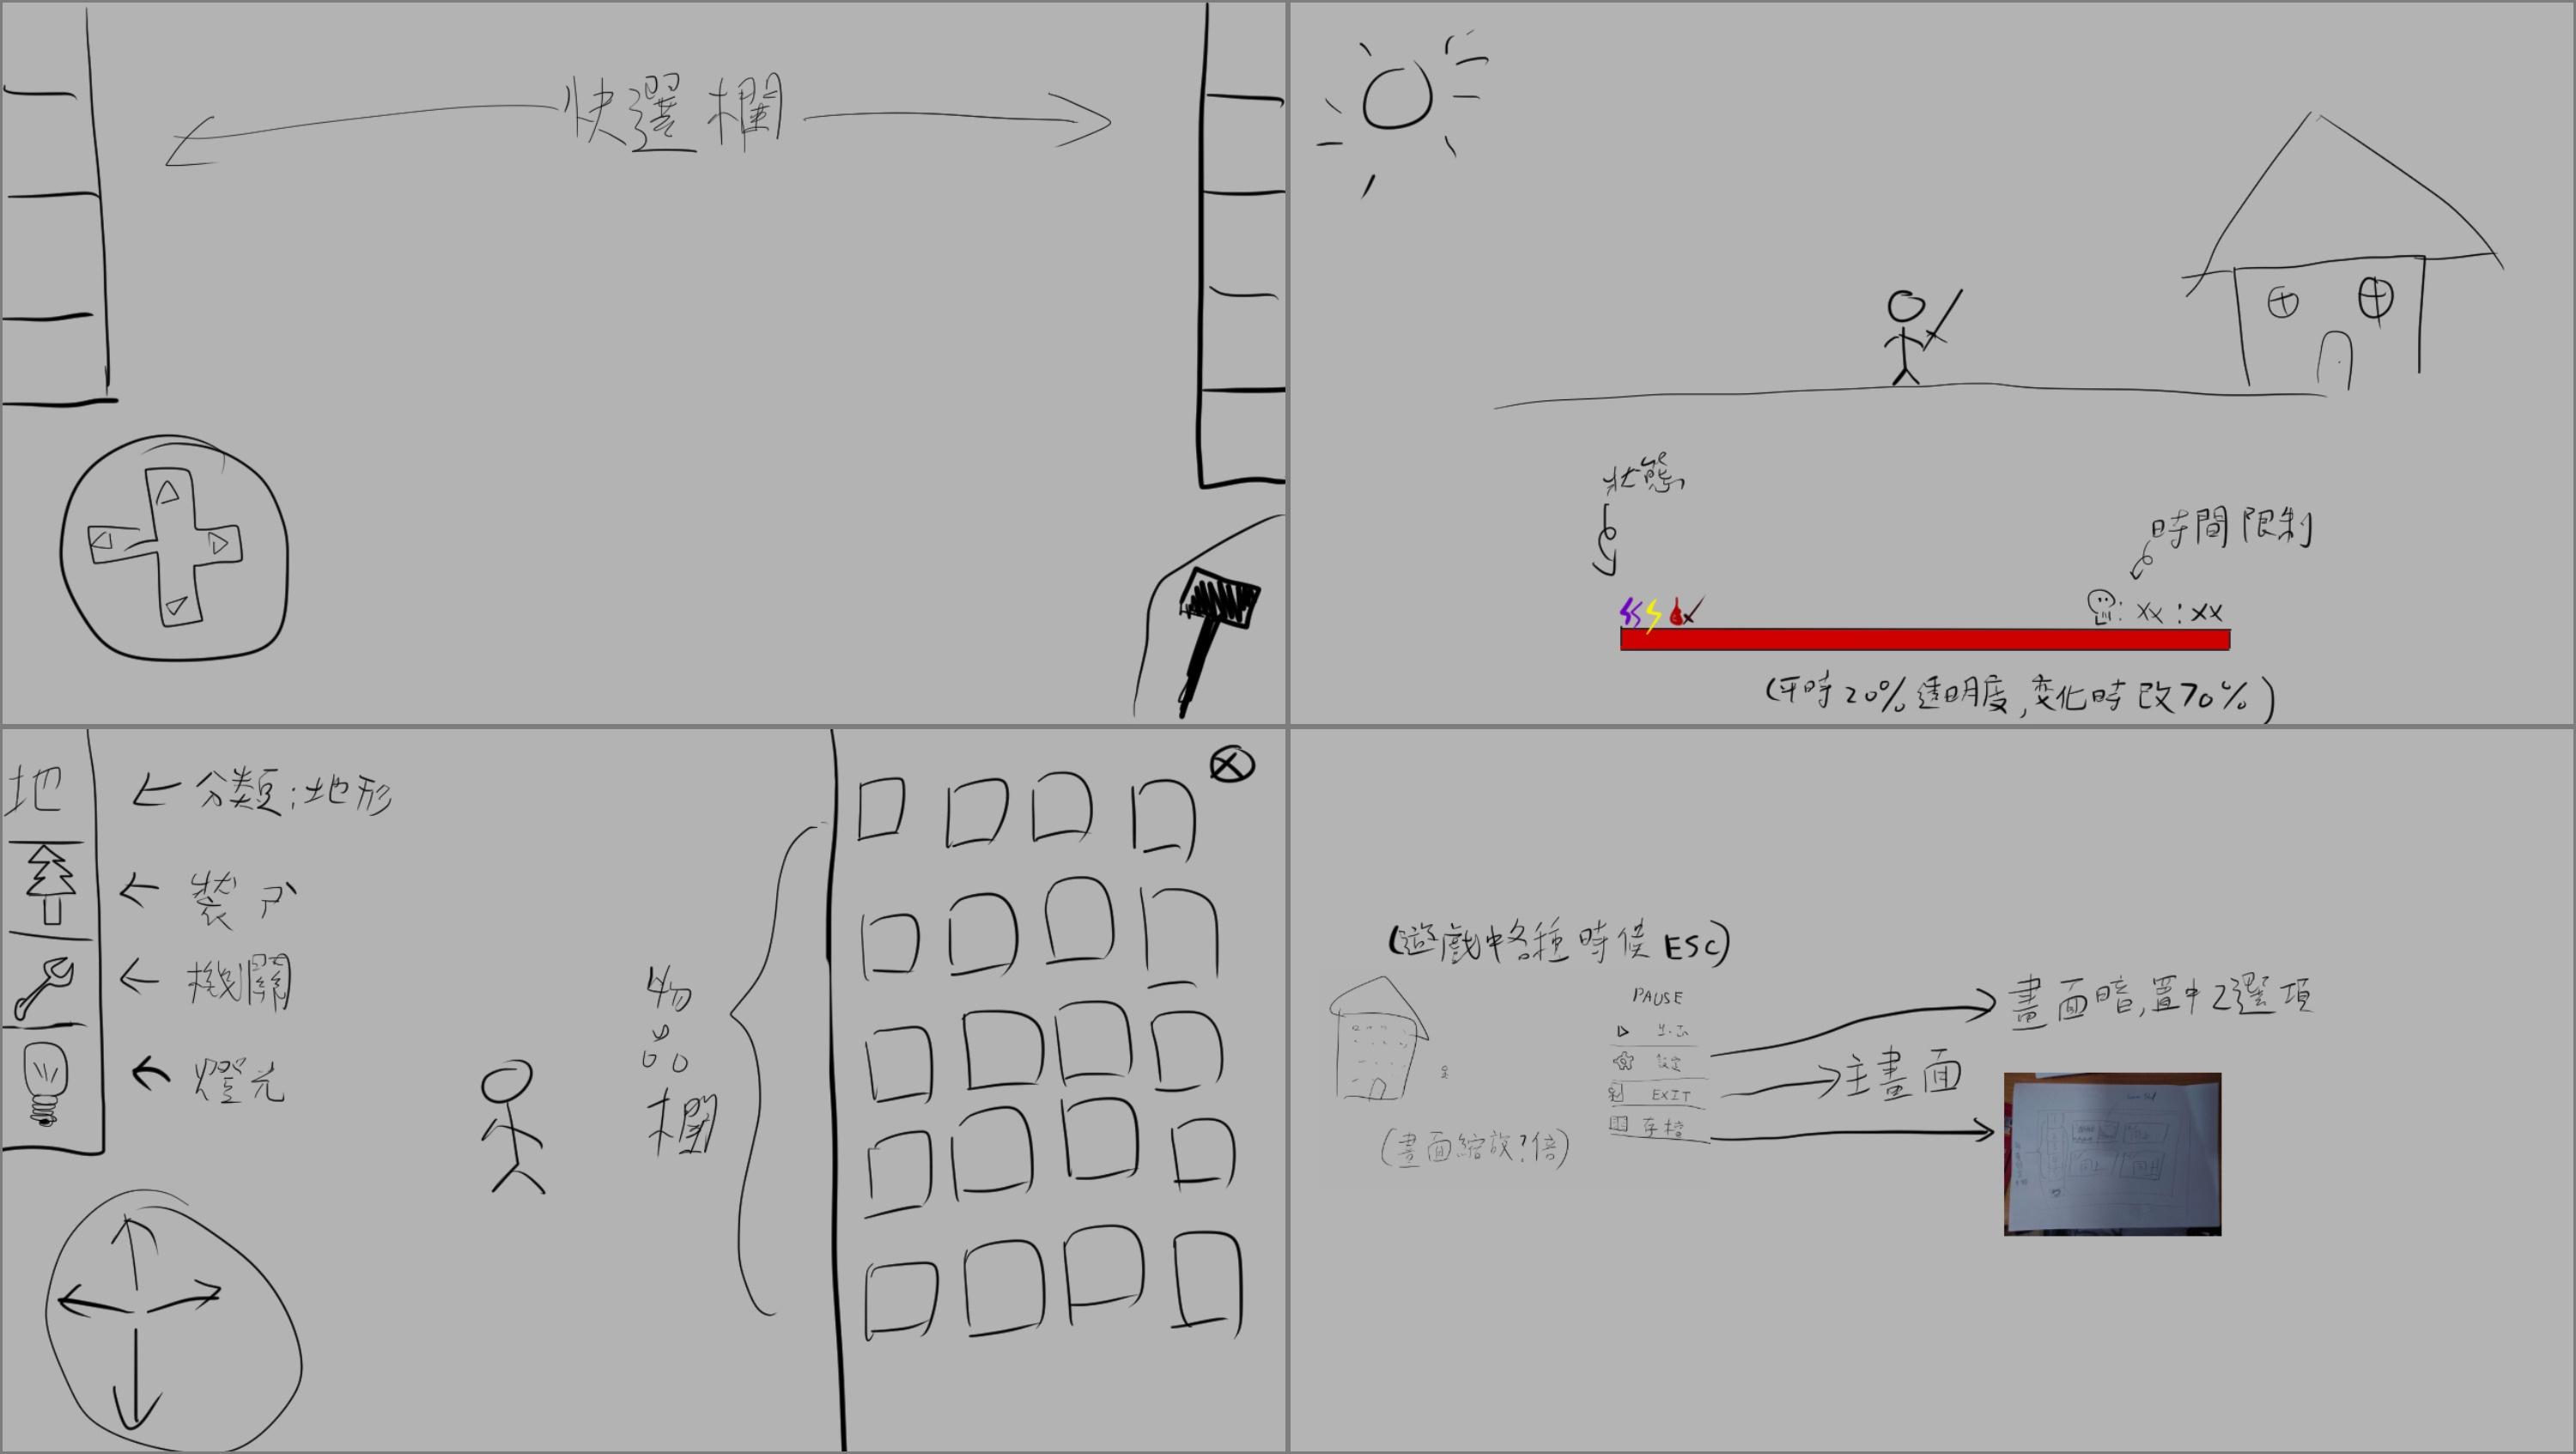 快選欄
狀態
時間限制
: xx : xx
(平時20%透明度,変化時改70%)
地
←分類:地形
← 裝
← 機關
← 燈光
物品欄
(遊戲中各種時候ESC)
PAUSE
設定
EXIT
存檔
(畫面縮放?倍)
畫面暗,置中2選項
主畫面